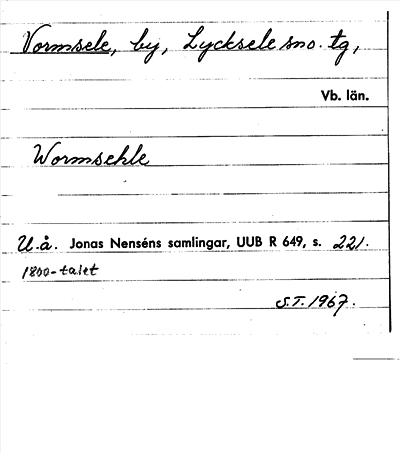 Vormsele, by, Lycksele sno. tg,
Vb. län.
Wormsehle
U.å. Jonas Nenséns samlingar, UUB R 649, s. 221.
1800-talet
S.T. 1967.